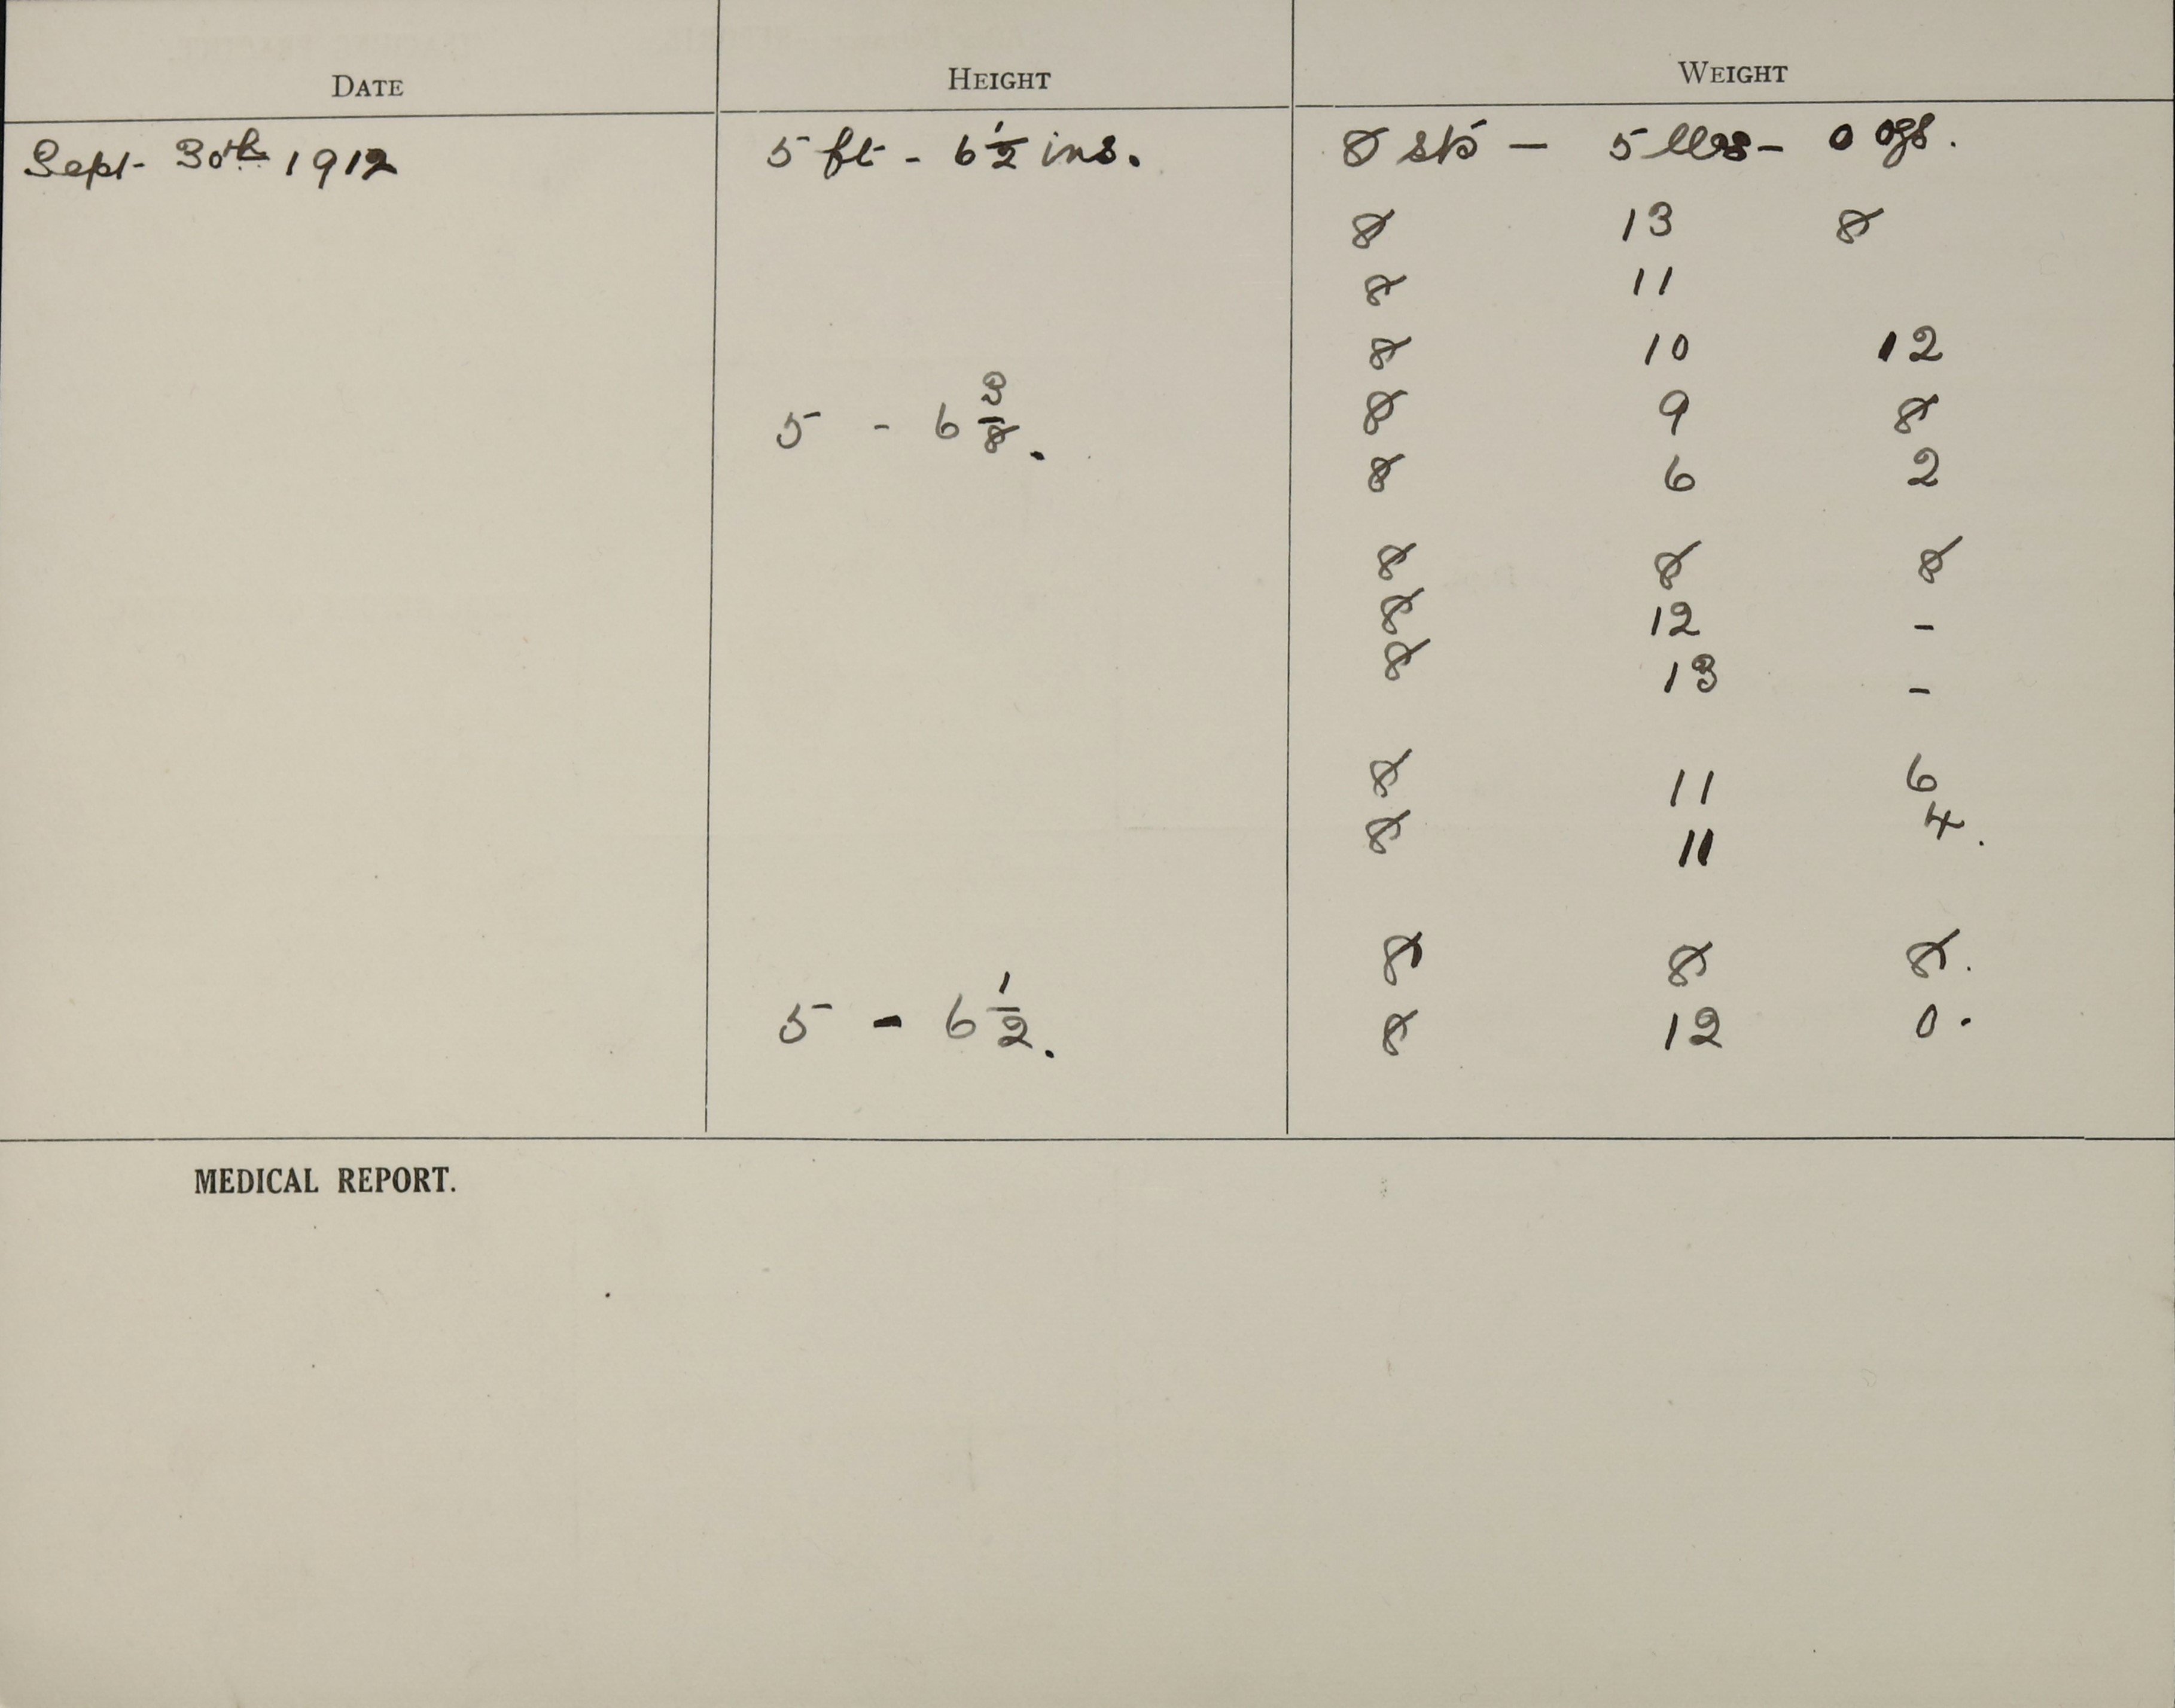 DATE HEIGHT WEIGHT
Sept. 30th 1912 5 ft - 6 1/2 ins. 8 sts - 5 lbs - 0 ozs.
8 13 8
8 11
8 10 12
5 - 6 3/8. 8 9 8
8 6 2
8 8 8
8 12 -
8 13 -
8 11 6
8 11 4.
8 8 8.
5 - 6 1/2. 8 12 0.
MEDICAL REPORT.